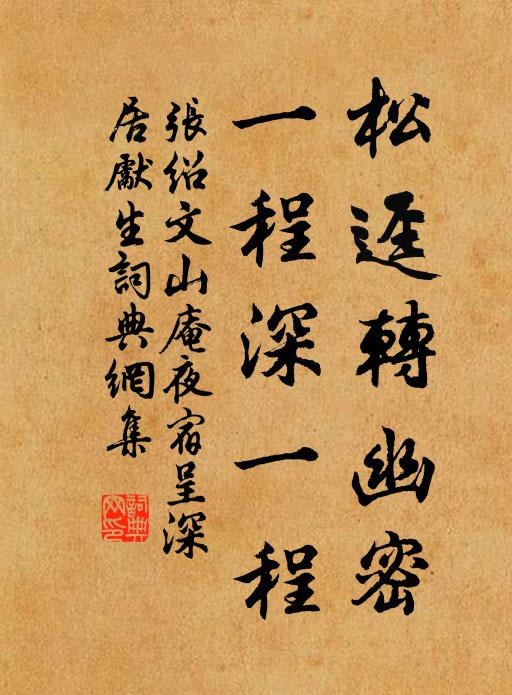 松逕轉幽密
一程深一程
張紹文山庵夜宿呈深
居獻生詞典網集
詞典网印